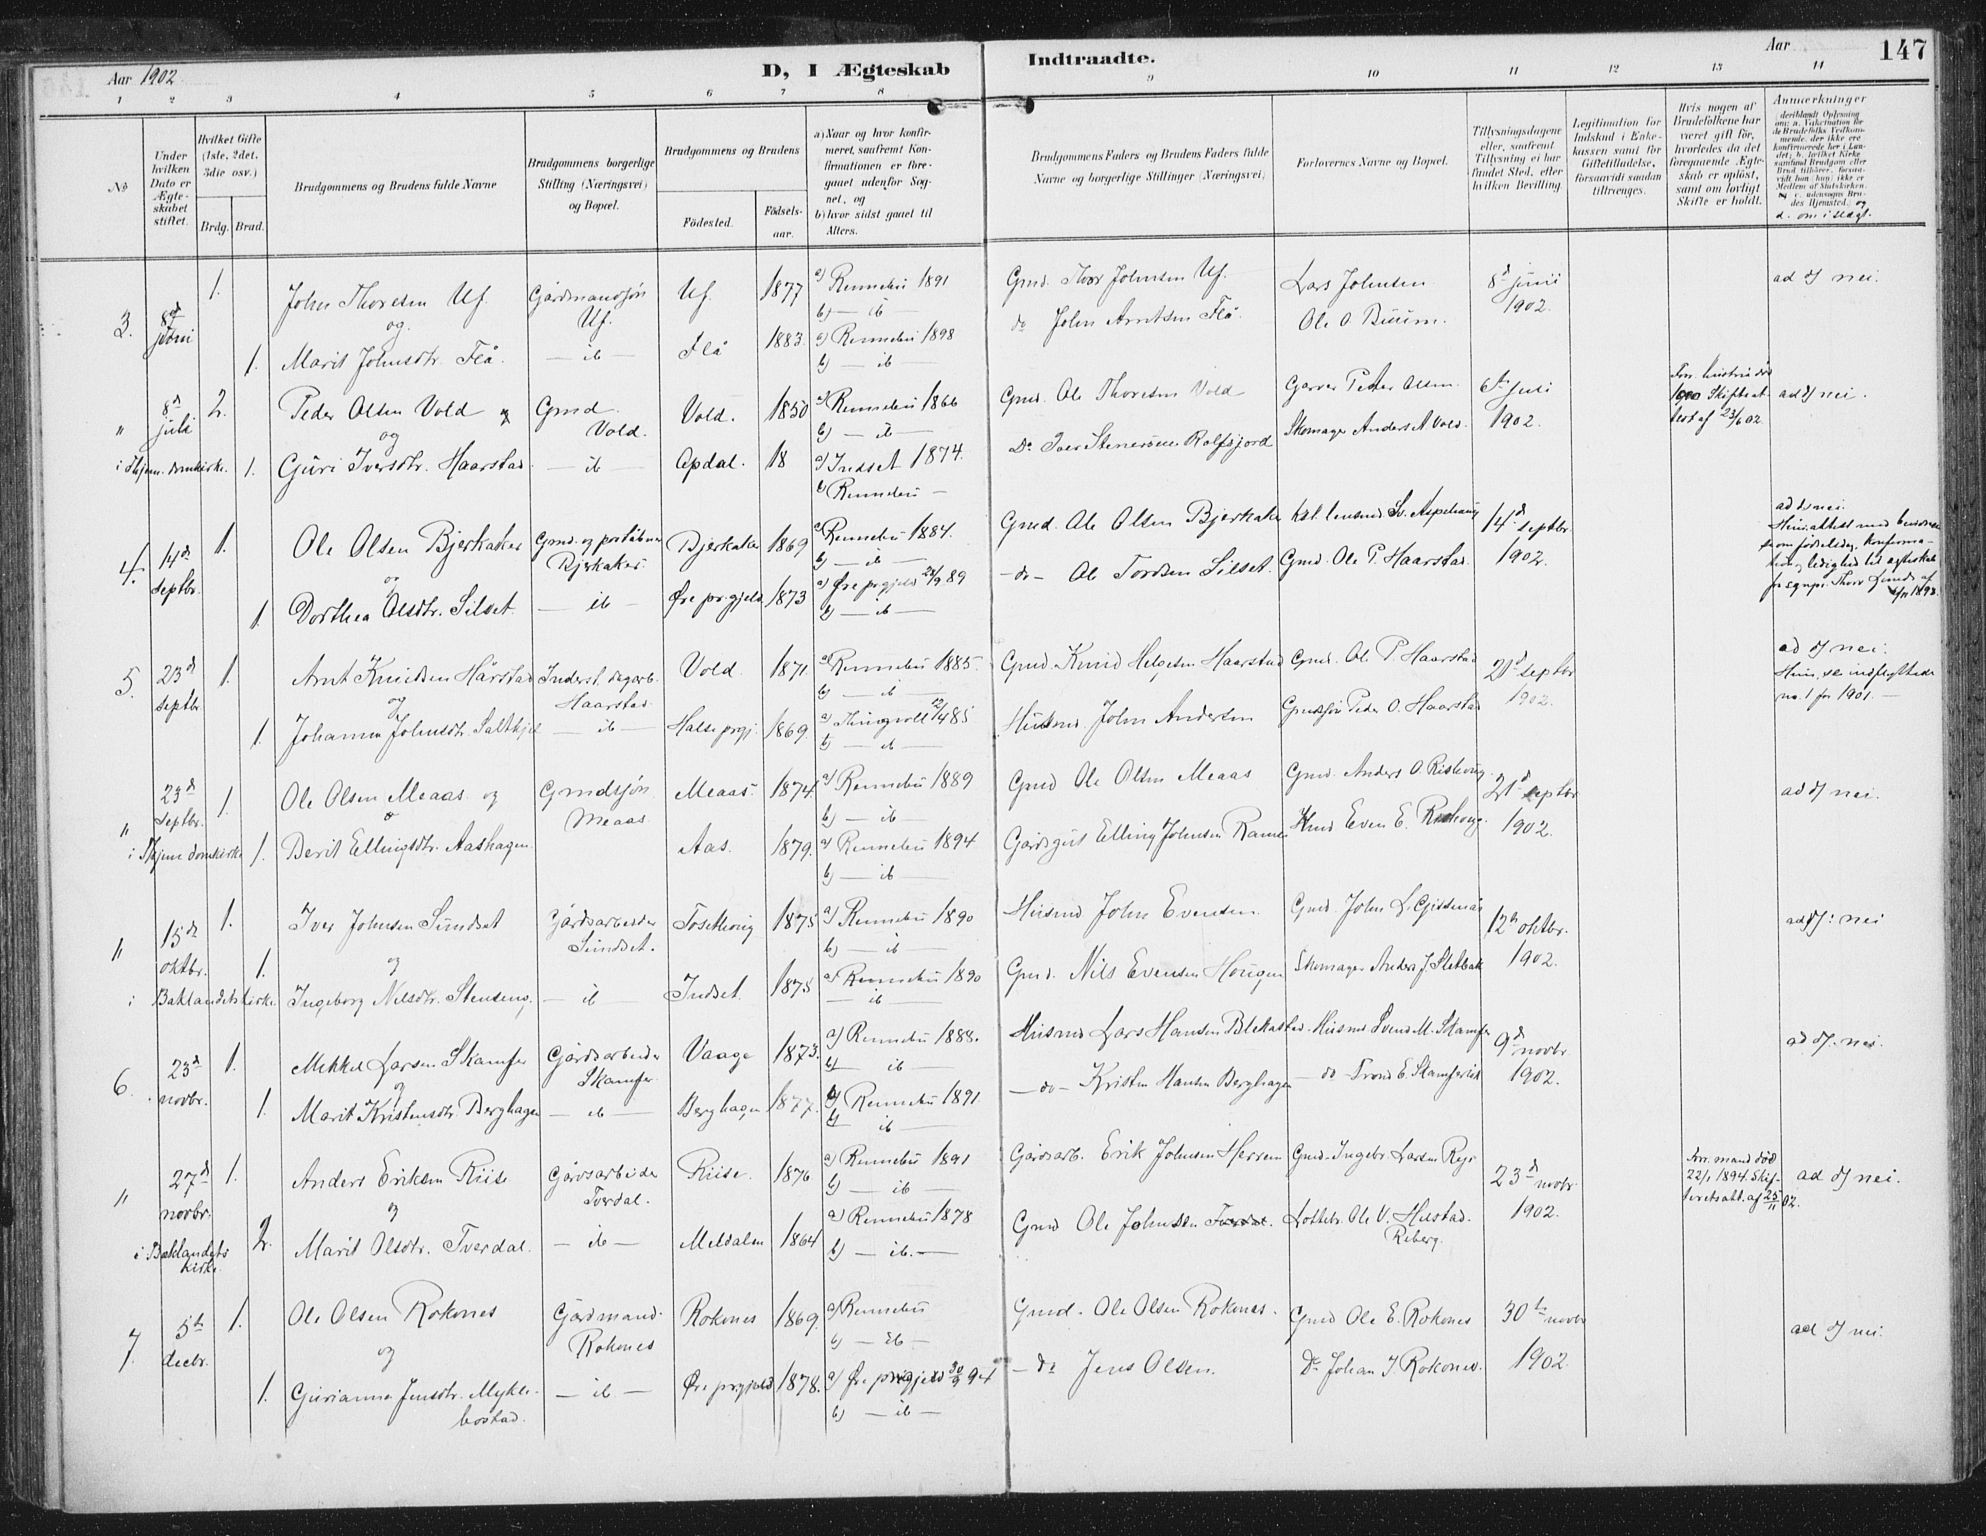 Aar 1902
D, I Ægteskab
Indtraadte.
Aar
147
1 2 3 4 5 6 7 8 9 10 11 12 13 14
No
Under hvilken Dato er Ægteskabet stiftet.
Hvilket Gifte (1ste, 2det, 3die osv.)
Brdg. Brud.
Brudgommens og Brudens fulde Navne
Brudgommens borgerlige Stilling (Næringsvei) og Bopæl.
Brudgommens og Brudens
Fødested.
Fødsels-aar.
a) Naar og hvor konfirmeret, saafremt Konfirmationen er foregaaet udenfor Sognet, og
b) hvor sidst gaaet til Alters.
Brudgommens Faders og Brudens Faders fulde Navne og borgerlige Stillinger (Næringsvei)
Forlovernes Navne og Bopæl.
Tillysningsdagene eller, saafremt Tillysning ei har fundet Sted, efter hvilken Bevilling.
Legitimation for Indskud i Enkekassen samt for Giftetilladelse, forsaavidt saadan tiltrænges.
Hvis nogen af Brudefolkene har været gift før, hvorledes da det foregaaende Ægteskab er opløst, samt om lovligt Skifte er holdt.
Anmærkninger
3. 8d juni 1. John Thoresen Uf. Gårdmandssøn Uf. Uf 1877 a) Rennebu 1891 b) — ib — Gmd. Thor Johnsen Uf. Lars Johnsen 8d juni 1902. ad d) nei.
og
1. Marit Johnsdtr. Flå. — ib — Flå 1883. a) Rennebu 1898 b) — ib — do John Arntsen Flå. Ole O. Buum.
" 8d juli 2. Peder Olsen Vold Gmd Vold. Vold. 1850 a) Rennebu 1866 b) — ib — Gmd. Ole Thoresen Vold Garver Peder Olsen 6te juli 1902. Forr. hustru død 1900 Skifteattest af 23/6 02. ad d) nei.
og
i Thjem domkirke. 1. Guri Iversdtr. Haarstad — ib — Opdal. 18 a) Indset 1874. b) Rennebu — Do Iver Stenersen Rolfsjord Skomager Anders A Vold.
4. 14d septbr. 1. Ole Olsen Bjerkaker Gmd. og poståbner Bjerkaker Bjerkaker 1869 a) Rennebu 1884. b) — ib — Gmd. Ole Olsen Bjerkaker 14d septbr 1902. ad d) nei.
og
1. Dorthea Olsdtr. Silset. — ib — Øre prgjeld 1873 a) Øre prgjeld 89 b) — ib — — do — Ole Tordsen Silset. Gmd. Ole P. Haarstad.
5. 23d septbr 1. Arnt Knudsen Hårstad Inderst. dagarb. Haarstad Vold. 1871. a) Rennebu 1885. b) — ib — Gmd. Knud Helgesen Haarstad Gmd. Ole P. Haarstad 21d septbr 1902. ad d) nei. Hun, se indflyttede no. 1 for 1901. —
og
1. Johanna Johnsdtr. — ib — Halse prgj. 1869. a) Thingvoll 85 b) — ib — Husmd. John Andersen Gmdssøn Peder O. Haarstad
" 23d septbr. 1. Ole Olsen Meaas og Gmdssøn Meaas Meaas 1874. a) Rennebu 1889 b) — ib — Gmd Ole Olsen Meaas Gmd. Anders O. 21d septbr 1902. ad d) nei.
i Thjem domkirke 1. Berit Ellingsdtr. Aashagen. Aas. 1879. a) Rennebu 1894 b) — ib — Gårdsgut Elling Johnsen Even E.
" 15de oktbr. 1. Iver Johnsen Sundset Gårdsarbeider Sundset. 1875 a) Rennebu 1890 b) — ib — Husmd John Evensen. Gmd. John L. 12te oktbr. 1902. ad d): nei
og
i Baklandets kirke 1. Ingeborg Nilsdtr. Stenseng. — ib Indset. 1875 a) Rennebu 1890 — ib Gmd. Nils Evensen Hougen Skomager Anders J. Sletbak
6. 23d novbr. 1. Mikkel Larsen Skamfer Gårdsarbeider Skamfer. Vaage 1873. a) Rennebu 1888. b) — ib — Husmd Lars Hansen Husmd Svend M. Skamfer 9d novbr 1902. ad d). nei.
og
1. Marit Kristensdtr. Berghagen — ib — Berghagen 1877. a) Rennebu 1891 b) — ib — — do — Kristen Hansen Berghagen — do —
" 27d novbr. 1. Anders Eriksen Riise Gårdsarbeider Tverdal. Riise. 1876 a) Rennebu 1891 b) — ib — Gårdsarb. Erik Johnsen Herrem Gmd. Ingebr. Larsen 23d novbr 1902. Forr. mand død 22/1 1894. Skifteretsatt. af 25/11 02. ad d) nei.
og
i Baklandets kirke. 2. Marit Olsdtr. Tverdal. — ib — Meldalen 1864 a) Rennebu 1878 b) — ib. — Gmd Ole Johnsen Tverdal. Ole V. Hustad. Reberg.
7. 5te decbr. 1. Ole Olsen Rokones Gårdmand. Rokones Rokones 1869. a) Rennebu b) — ib — Gmd. Ole Olsen Rokones. Gmd Ole E. Rokones 30te novbr 1902. ad d) nei.
og
1. Gurianna Jensdtr. Myklebostad. — ib — Øre prgjeld 1878. a) Øre prgjeld 30/9 94 b) — ib — — do Jens Olsen. Do Johan J. Rokones.